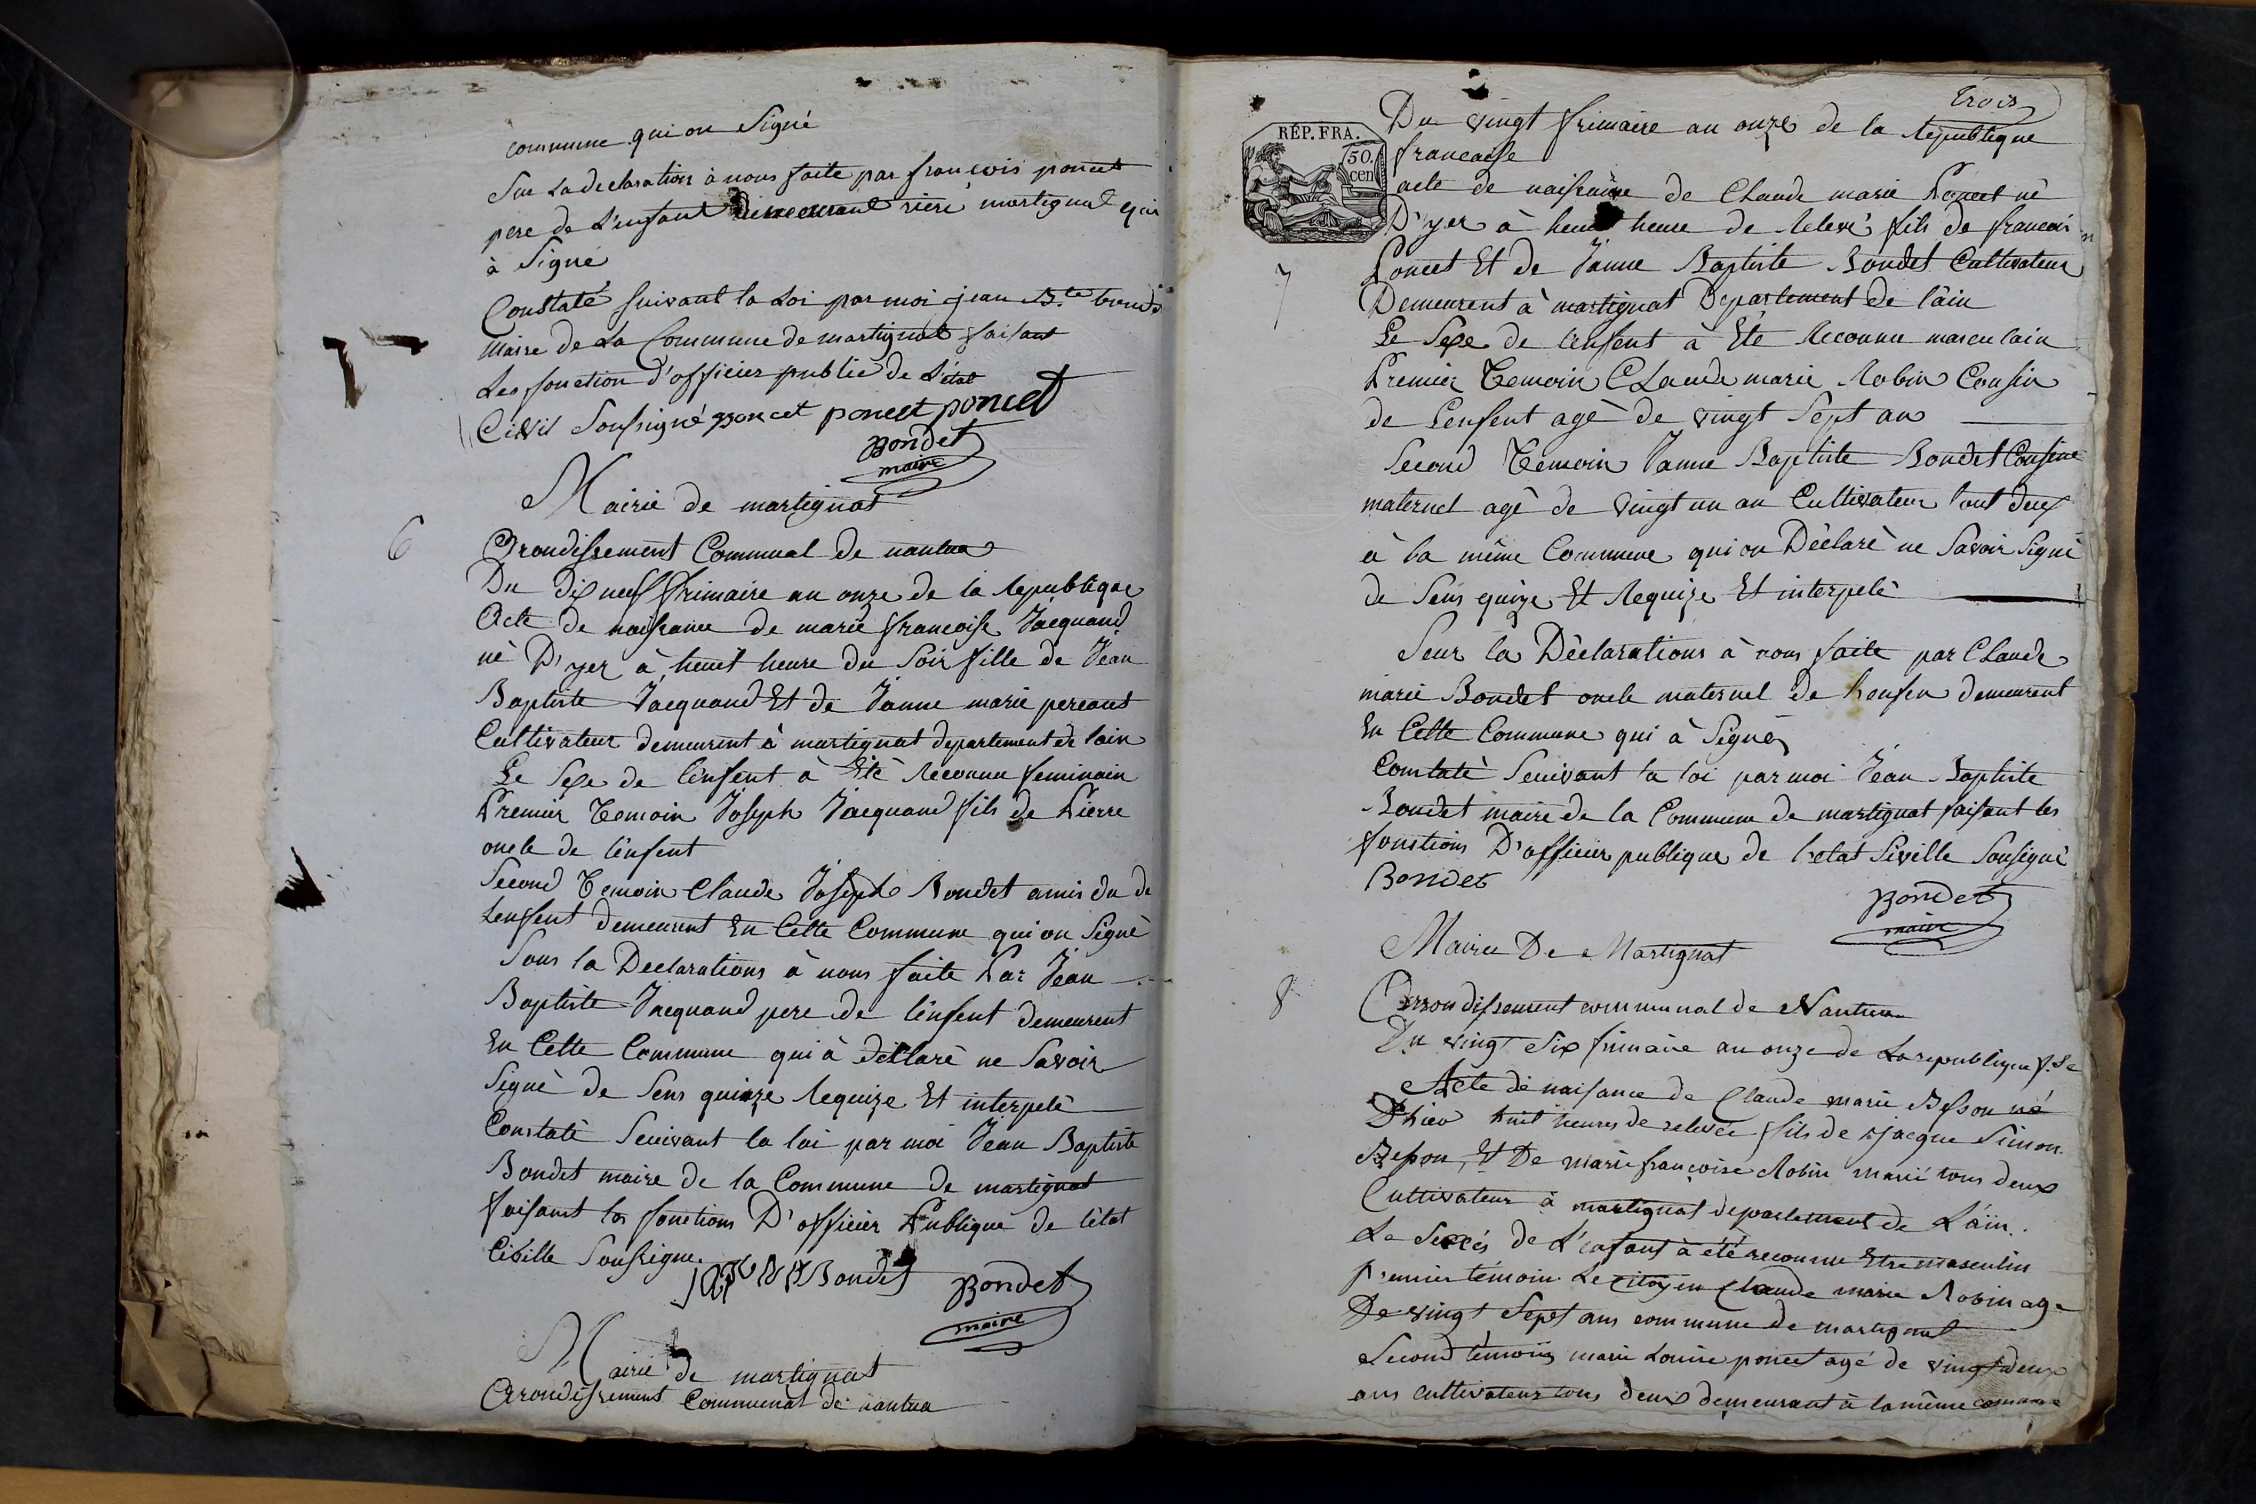 commune qui on Signé
Sur La declaration à nous faite par françois poncet
pere de L'enfant demeurant riere martignat qui
à Signé
Constaté suivant la Loi par moi jean B.te bondet
Maire de La Commune de martignat faisant
Les fonction d'officier public de L'état
Civil Soussigné poncet poncet poncet
Bondet
maire
Mairie de martignat
6
Arondissement Communal de nantua
Du dix neuf frimaire an onze de la republique
Acte de naissance de marie francoise Jacquand
né D'yer à heuit heure du Soir fille de Jean
Baptiste Jacquand Et de Janne marie
Cultivateur demeurent à martignat departement de lain
Le Sexe de lenfent à Eté reconnu feminain
Premier temoin Joseph Jacquand fils de Pierre
oncle de lenfent
Second temoin Claude Joseph Bondet amis du de
Lenfent demeurent En Cette Commune qui on Signé
Sous la Declarations à nous faite Par Jean
Baptiste Jacquand pere de lenfent demeurent
En Cette Commune qui à déclaré ne Savoir
Signé de Sens quinze Requize Et interpelé
Constaté Seuivant la loi par moi Jean Baptiste
Bondet maire de la Commune de martignat
faisant les fonctions D'officier Publique de létat
Civille Soussigne
Bondet
Bondet
maire
Mairie de martignat
Arondissement Communal de nantua
trois
RÉP. FRA.
50.
cen
Du vingt frimaire an onze de la republique
francaise
acte de naissance de Claude marie Poncet né
D'yer à heuit heure de relevé fils de francois
7
Poncet Et de Janne Baptiste Bondet Cultivateur
Demeurent à martignat Departement de lain
Le Sexe de lenfent à Eté reconnu masculain
Premier temoin CLaude marie Robin Cousin
de Lenfent agé de vingt Sept an
Second temoin Janne Baptiste Bondet Cousine
maternel agé de vingt un an Cultivateur tout deux
à la même Commune qui on Déclaré ne Savoir Signé
de Sens quize Et Requize Et interpelé
Seur la Déclarations à nous faite par CLaude
marie Bondet oncle maternel de demeurent
En Cette Commune qui à Signé
Constaté Seuivant la loi par moi Jean Baptiste
Bondet maire de la Commune de martignat faisant les
fonctions D'officier publique de l'etat Siville Sousigné
Bondet
Bondet
maire
Mairie De Martignat
8
Arrondissement communal de Nantua
Du vingt Six frimaire an onze de La republique f.se
Acte de naissance de Claude marie Besson né
D'hier huit heures de relevée fils de jacque Simon
Besson, Et De marie françoise Robin marié tous deux
Cultivateur à martignat departement de L'ain.
Le Sexes de L'enfant à été reconnu Etre masculin
premier témoin Le Citoyen Claude marie Robin age
De vingt Sept ans commune de martignat
Second témoin marie Louise poncet agé de vingt deux
ans cultivateur tous deux demeurant à la même commune